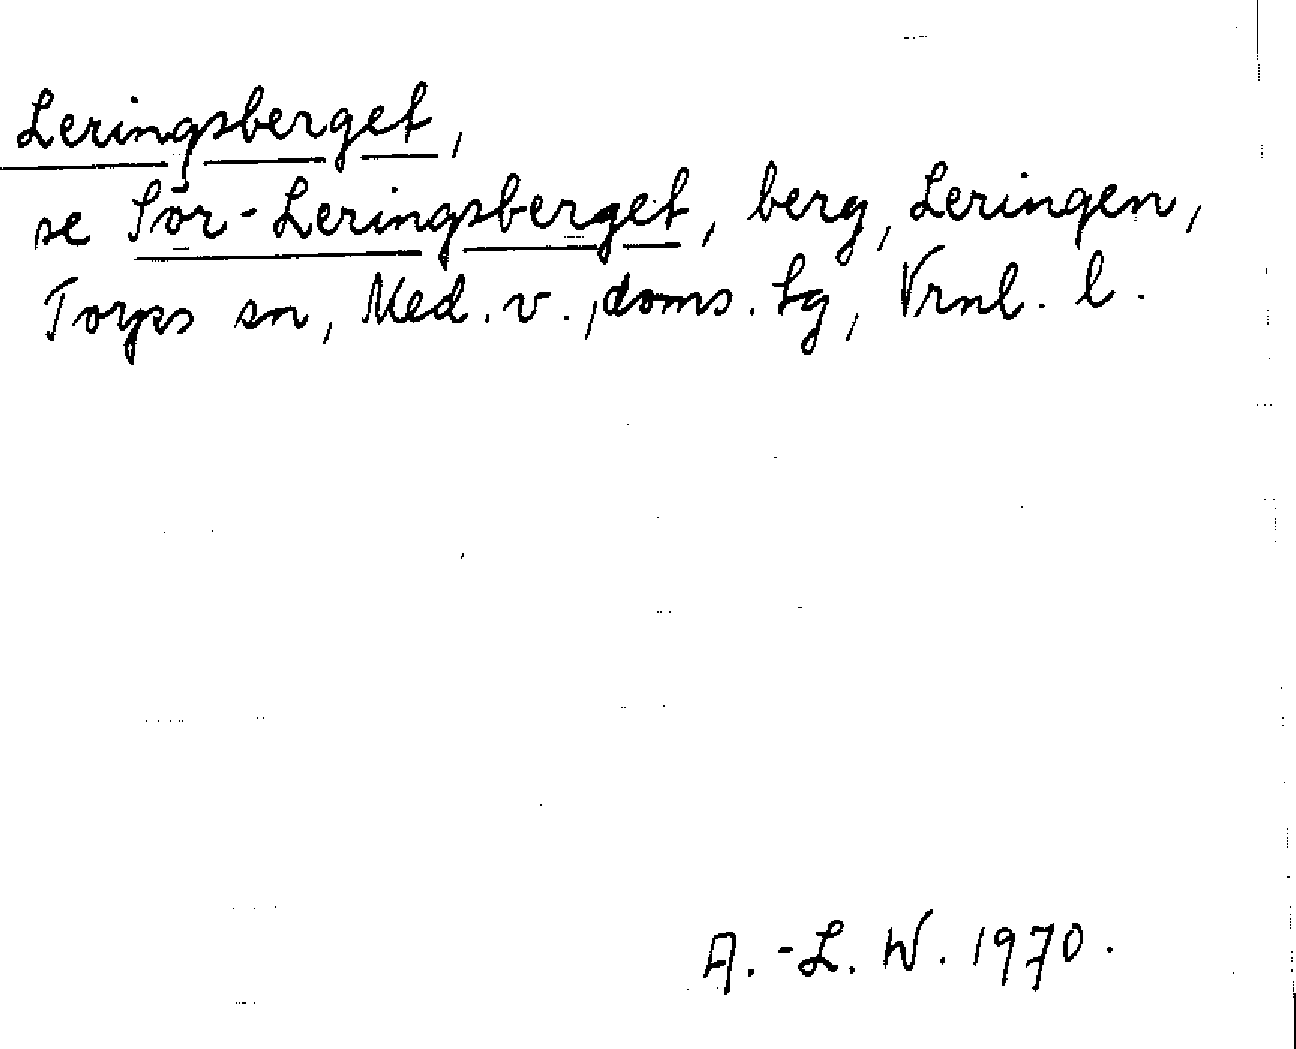 Leringsberget,
se Sör-Leringsberget, berg, Leringen,
Torps sn, Med. v., doms. hg, Vrnl. l.
A.-L. W. 1970.